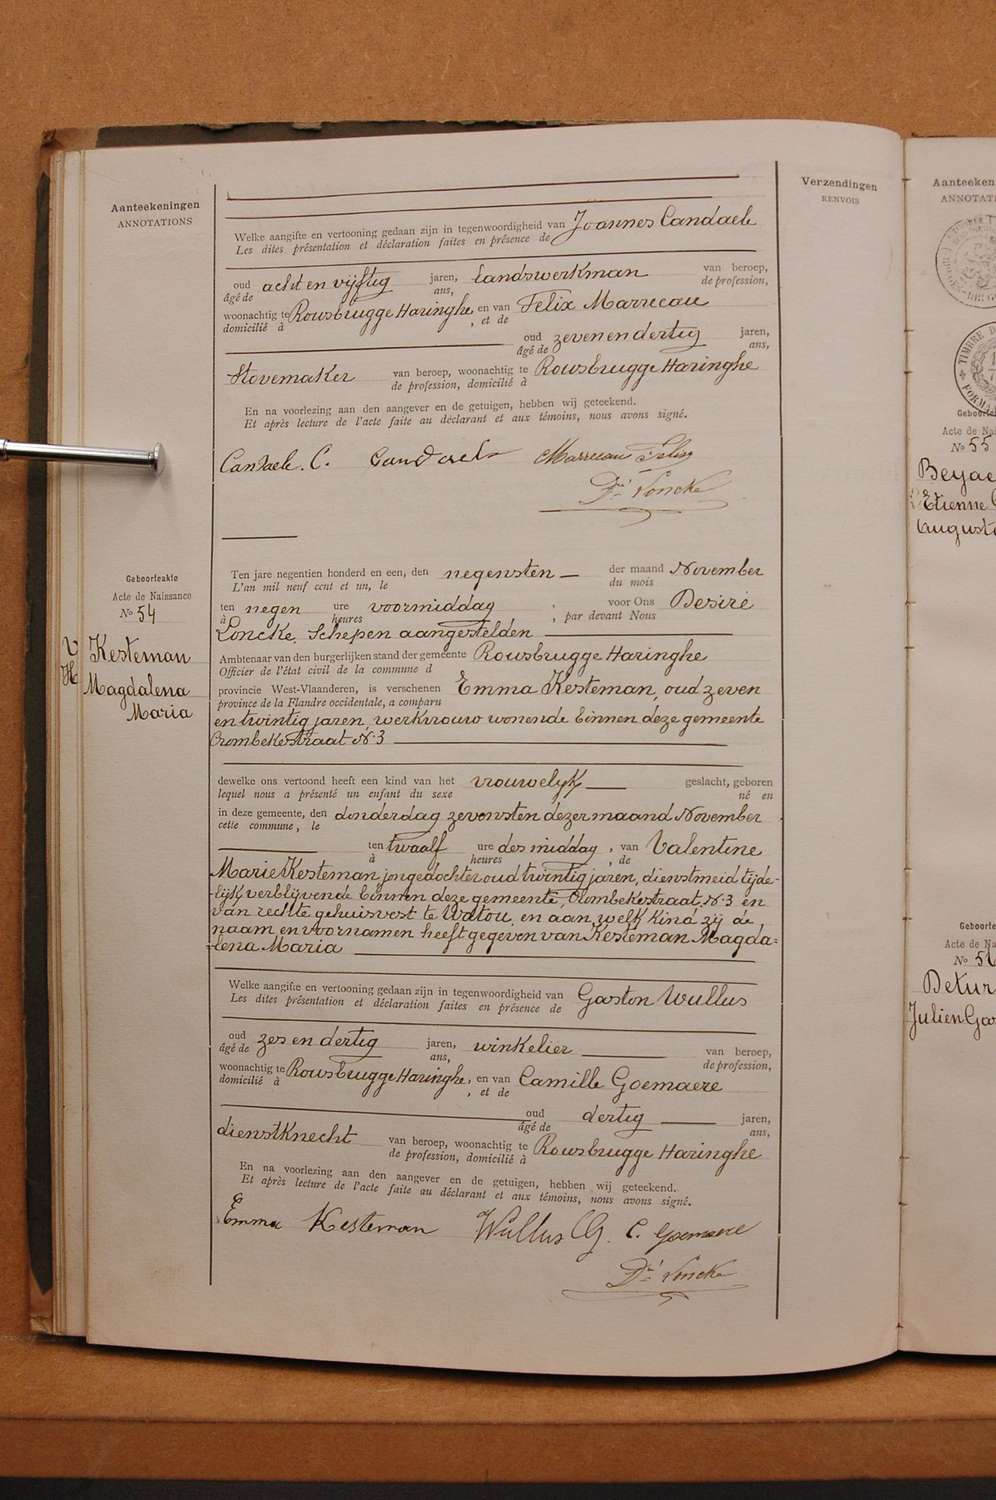 Aanteekeningen
ANNOTATIONS
Verzendingen
RENVOIS
Welke aangifte en vertooning gedaan zijn in tegenwoordigheid van Joannes Candaele
Les dites présentation et déclaration faites en présence de
oud acht en vijftig jaren, landswerkman van beroep,
âgé de ans, de profession,
woonachtig te Rousbrugge Haringhe, en van Felix Marrecau
domicilié à , et de
oud zevenendertig jaren,
âgé de ans,
Stovemaker van beroep, woonachtig te Rousbrugge Haringhe
de profession, domicilié à
En na voorlezing aan den aangever en de getuigen, hebben wij geteekend.
Et après lecture de l'acte faite au déclarant et aux témoins, nous avons signé.
Candaele. C. Candaele Marrecau Felix
Dé Loncke
Geboorteakte
Acte de Naissance
No 54
Kesteman
Magdalena
Maria
Ten jare negentien honderd en een, den negensten der maand November
L'an mil neuf cent et un, le du mois
ten negen ure voormiddag , voor Ons Desiré
à heures , par devant Nous
Loncke, Schepen aangestelden
Ambtenaar van den burgerlijken stand der gemeente Rousbrugge Haringhe
Officier de l'état civil de la commune d
provincie West-Vlaanderen, is verschenen Emma Kesteman, oud zeven
province de la Flandre occidentale, a comparu
en twintig jaren, werkvrouw wonende binnen deze gemeente
Crombekestraat N. 3
dewelke ons vertoond heeft een kind van het vrouwelijk geslacht, geboren
lequel nous a présenté un enfant du sexe né en
in deze gemeente, den donderdag zevensten dezer maand November
cette commune, le
ten twaalf ure des middag , van Valentine
à heures , de
Marie Kesteman jongedochter oud twintig jaren, dienstmeid tijde-
-lijk verblijvende binnen deze gemeente, Crombekestraat, N. 3 en
van rechte gehuisvest te Watou, en aan welk kind zij de
naam en voornamen heeft gegeven van Kesteman Magda-
-lena Maria
Welke aangifte en vertooning gedaan zijn in tegenwoordigheid van Gaston Wullus
Les dites présentation et déclaration faites en présence de
oud zes en dertig jaren, winkelier van beroep,
âgé de ans, de profession,
woonachtig te Rousbrugge Haringhe, en van Camille Goemaere
domicilié à , et de
oud dertig jaren,
âgé de ans,
dienstknecht van beroep, woonachtig te Rousbrugge Haringhe
de profession, domicilié à
En na voorlezing aan den aangever en de getuigen, hebben wij geteekend.
Et après lecture de l'acte faite au déclarant et aux témoins, nous avons signé.
Emma Kesteman Wullus G. C. Goemaere
Dé Loncke
Aanteeken
ANNOTATI
TIMBRE D
Geboorte
Acte de Nais
No 55
Beyae
Etienne
Auguste
Geboorte
Acte de Na
No 56
Detur
Julien Gas